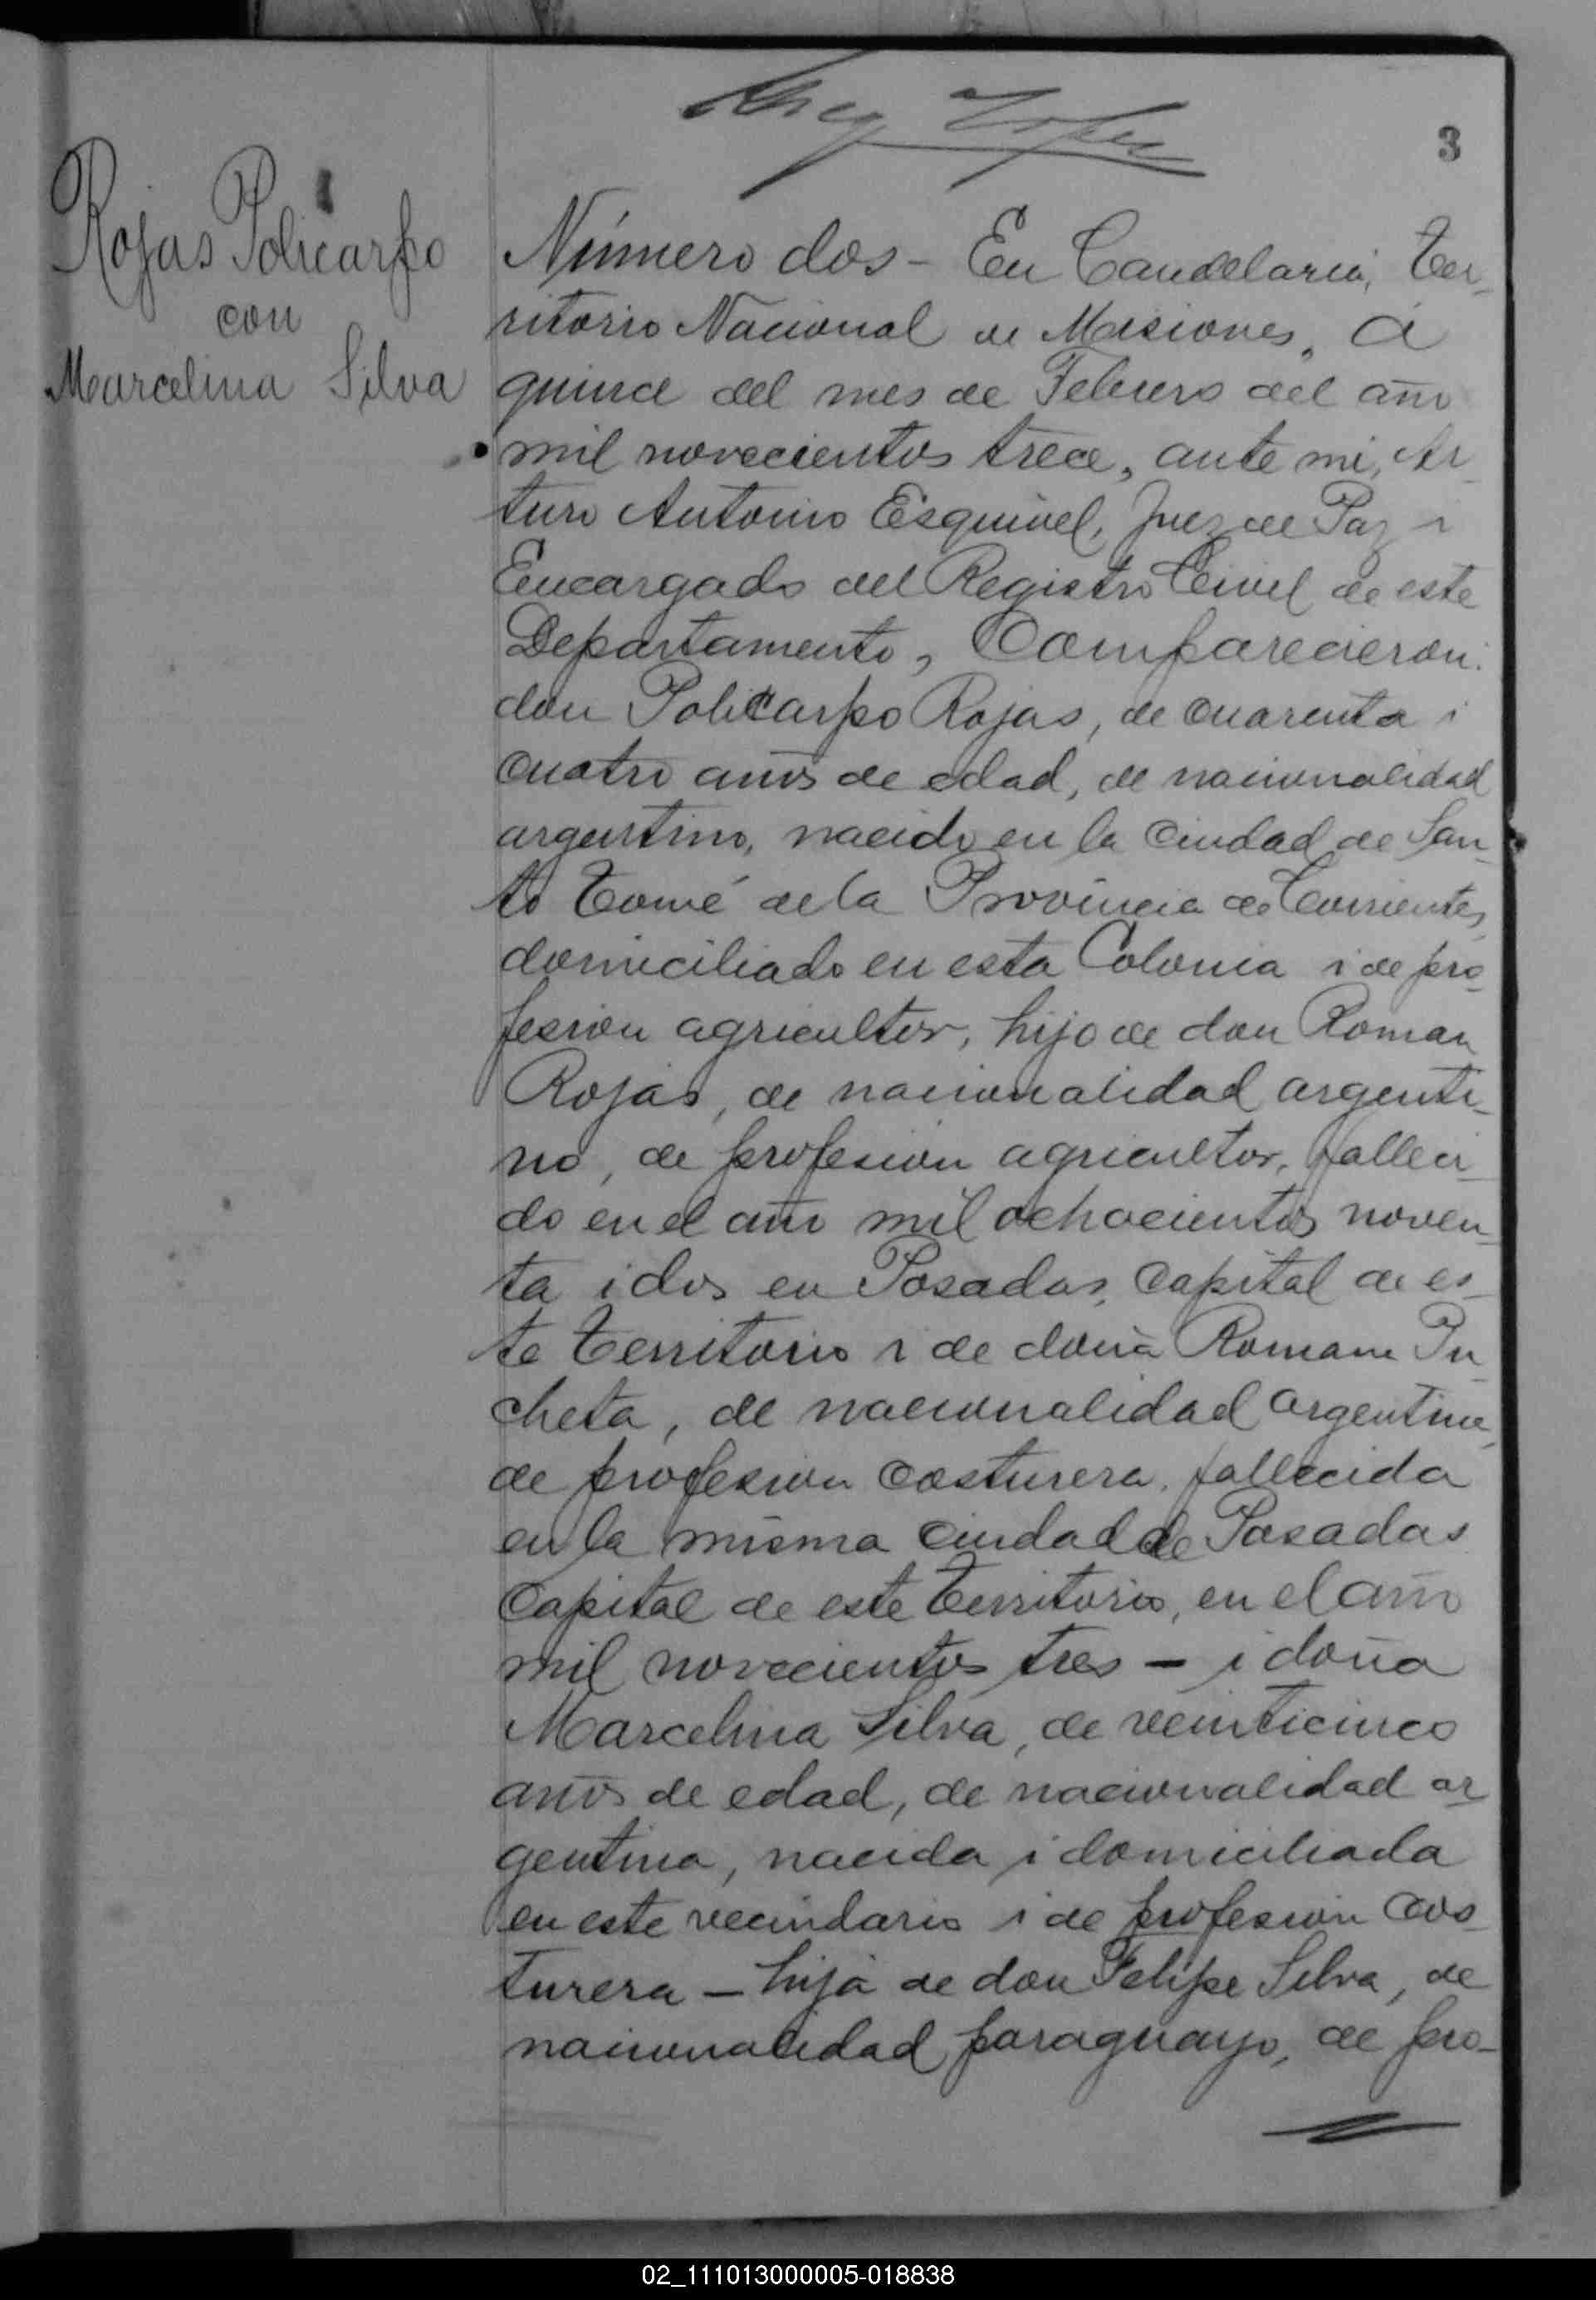 3
Rojas Policarpo
con
Marcelina Silva
Número dos - En Candelaria, Ter-
ritorio Nacional de Misiones, á
quince del mes de Febrero del año
mil novecientos trece, ante mi, Ar-
turo Antonio Esquivel, Juez de Paz i
Encargado del Registro Civil de este
Departamento, Comparecieron:
don Policarpo Rojas, de cuarenta i
cuatro años de edad, de nacionalidad
argentino, nacido en la Ciudad de San-
to Tomé de la Provincia de Corrientes,
domiciliado en esta Colonia i de pro-
fesion agricultor, hijo de don Roman
Rojas, de nacionalidad argenti-
no, de profesion agricultor, falleci-
do en el año mil ochocientos noven-
ta i dos en Posadas, Capital de es-
te Territorio i de doña Romana Pu-
cheta, de nacionalidad argentina,
de profesion costurera, fallecida
en la misma Ciudad de Posadas
Capital de este Territorio, en el año
mil novecientos tres - i doña
Marcelina Silva, de veinticinco
años de edad, de nacionalidad ar-
gentina, nacida i domiciliada
en este vecindario i de profesion cos-
turera - hija de don Felipe Silva, de
nacionalidad paraguayo, de pro-
02_111013000005-018838